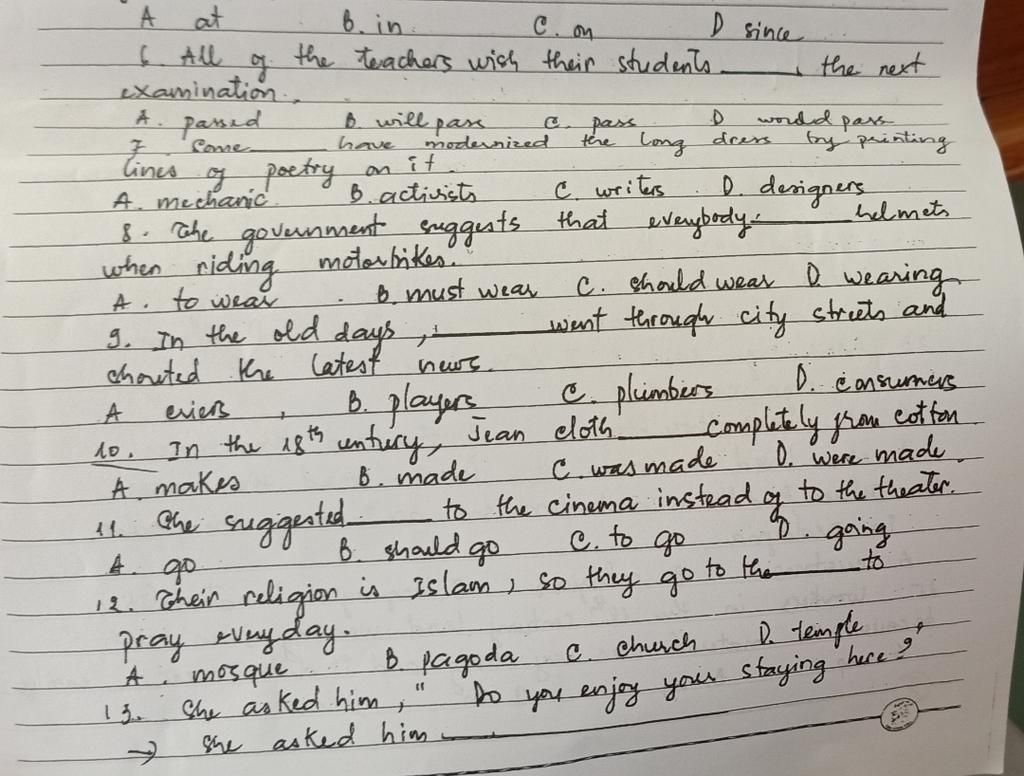 A at B. in C. on D since
6. All of the teachers wish their students ____ the next
examination.
A. passed B. will pass C. pass D would pass
7. Some ____ have modernized the long dress by printing
lines of poetry on it.
A. mechanic B. activists C. writers D. designers
8. The government suggests that everybody ____ helmets
when riding motorbikes.
A. to wear B. must wear C. should wear D. wearing
9. In the old days, ____ went through city streets and
shouted the latest news.
A criers B. players C. plumbers D. consumers
10. In the 18th century, Jean cloth ____ completely from cotton
A. makes B. made C. was made D. were made.
11. She suggested ____ to the cinema instead of to the theater.
A. go B. should go C. to go D. going
12. Their religion is Islam, so they go to the ____ to
pray every day.
A. mosque B. pagoda C. church D. temple
13. She asked him, "Do you enjoy your staying here?"
→ She asked him ____